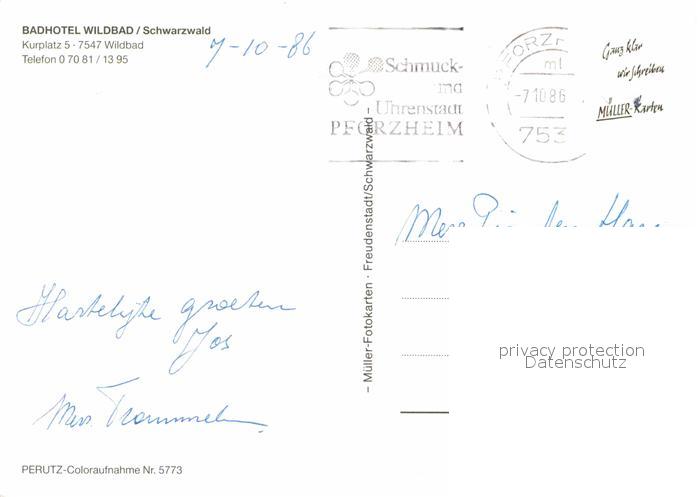 BADHOTEL WILDBAD / Schwarzwald
Kurplatz 5 · 7547 Wildbad
Telefon 0 70 81 / 13 95
7-10-86
Schmuck-
und
Uhrenstadt
PFORZHEIM
PFORZ
ml
-7.10.86
753
Ganz klar
wir schreiben
MÜLLER-Karten
– Müller-Fotokarten · Freudenstadt/Schwarzwald –
Hartelijke groeten
Jos
privacy protection
Datenschutz
PERUTZ-Coloraufnahme Nr. 5773